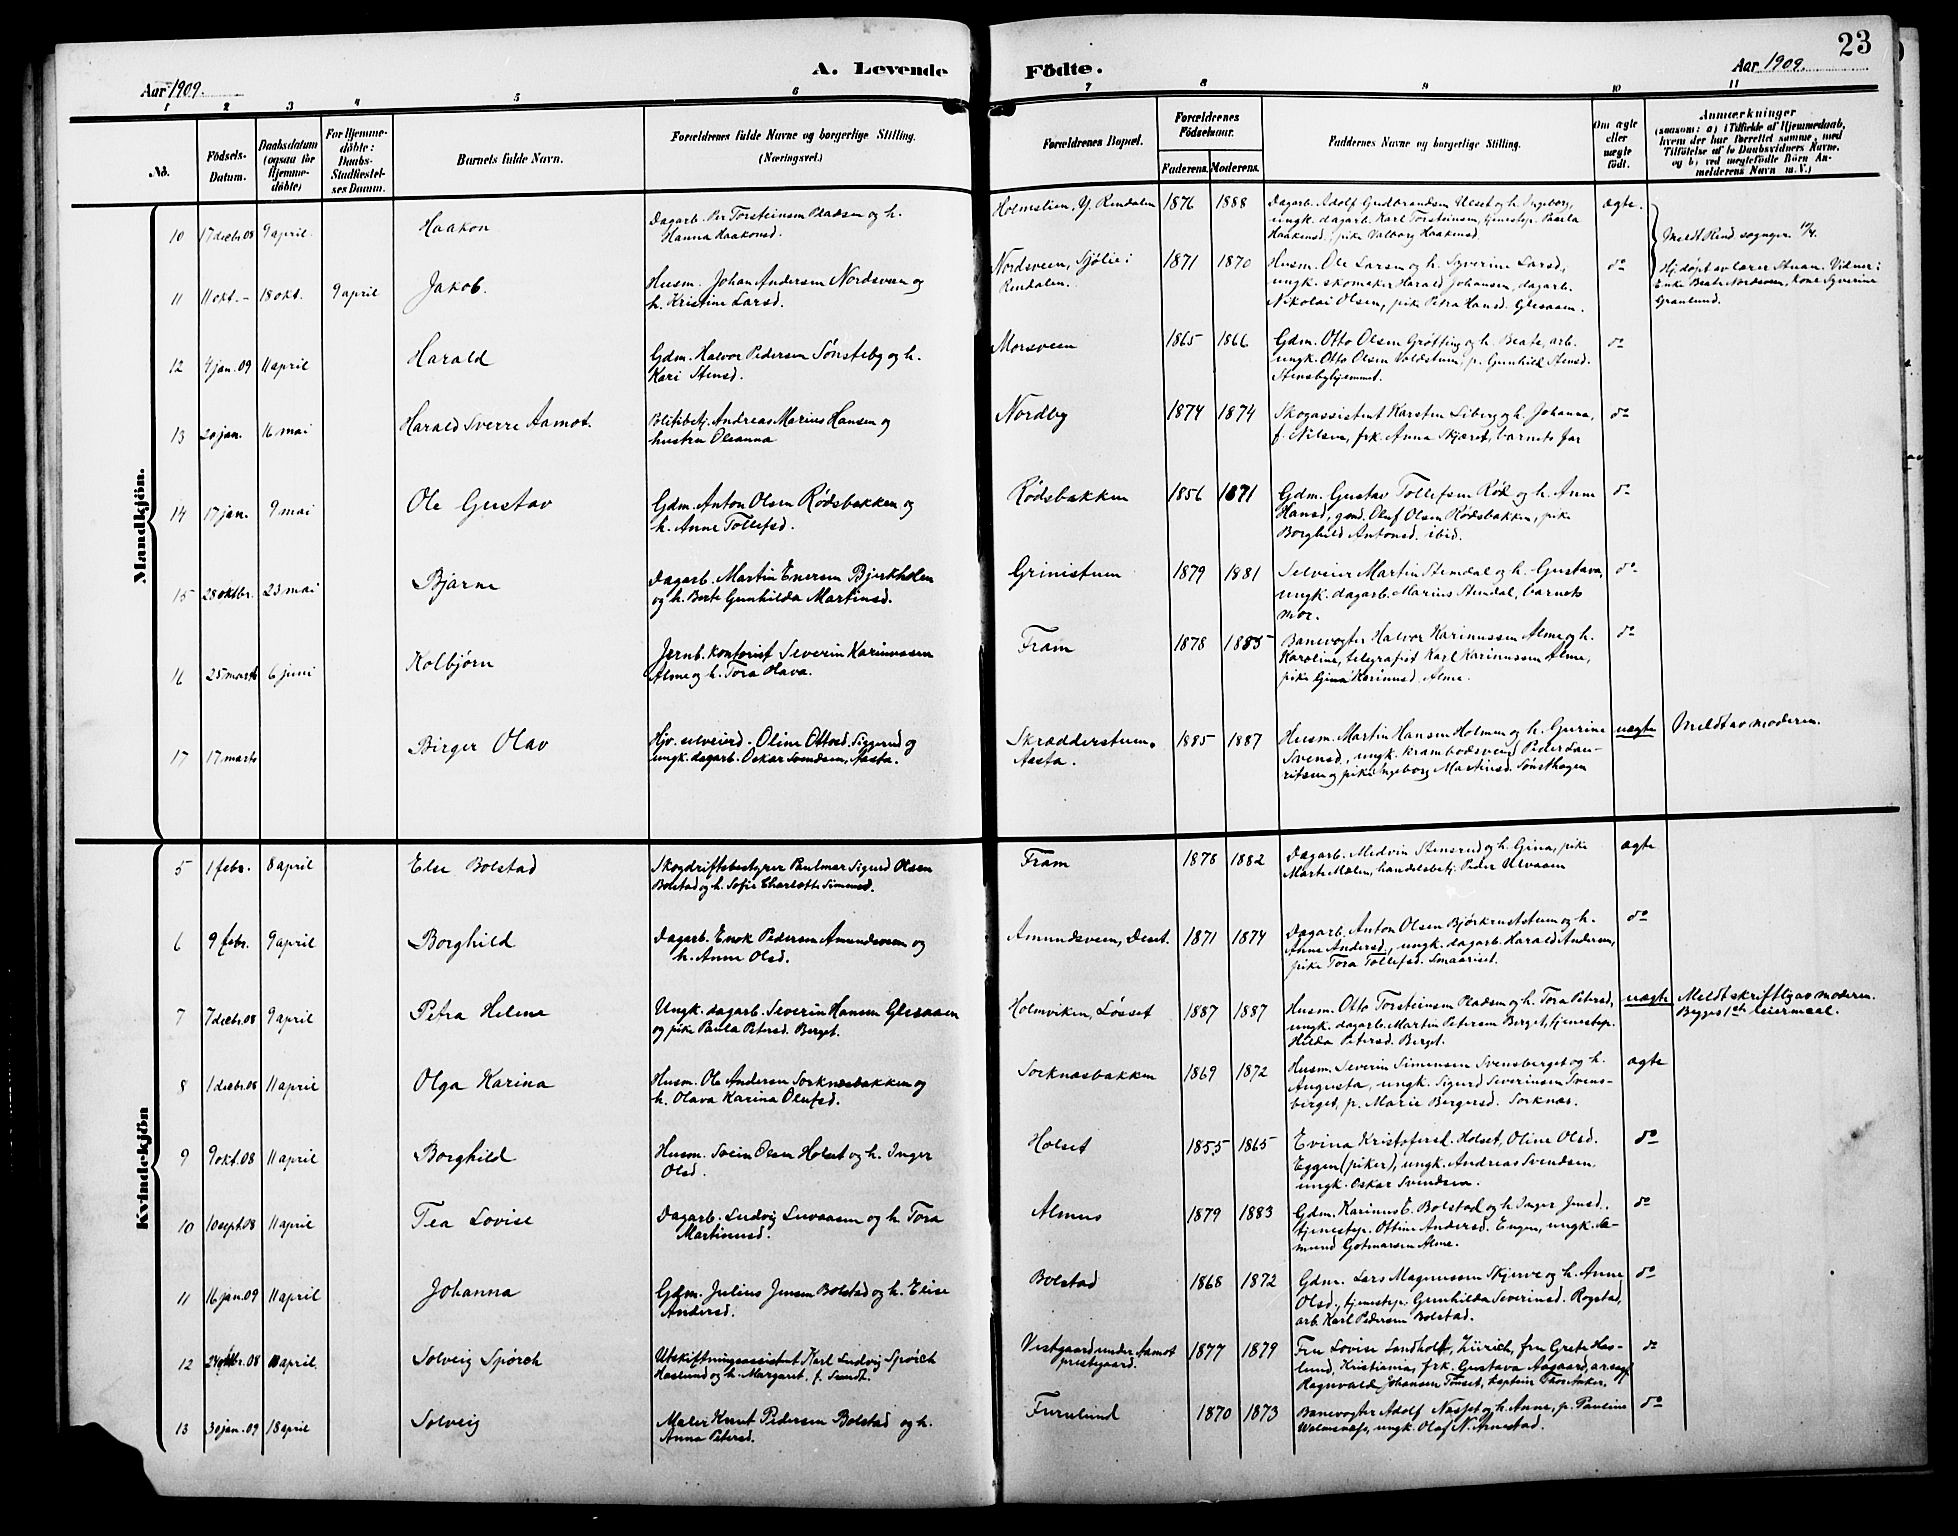 23
A. Levende Födte.
Aar 1909.
Aar 1909.
1 2 3 4 5 6 7 8 9 10 11
No.
Födsels-
Datum.
Daabsdatum
(ogsaa for
Hjemme-
döbte)
For Hjemme-
döbte:
Daabs-
Stadfæstel-
ses Datum.
Barnets fulde Navn.
Forældrenes fulde Navne og borgerlige Stilling.
(Næringsvei.)
Forældrenes Bopæl.
Forældrenes
Födselsaar.
Faderens. Moderens.
Faddernes Navne og borgerlige Stilling.
Om ægte
eller
uægte
födt.
Anmærkninger
(saasom: a) i Tilfælde af Hjemmedaab,
hvem der har forrettet samme, med
Tilföielse af to Daabsvidners Navne,
og b) ved uægtefödte Börn An-
melderens Navn m. V.)
Mandkjön.
10 17 decbr. 08 9 april. Haakon
Dagarb. Per Torsteinsen Pladsen og h.
Hanna Haakonsd.
Holmslien, Y. Rendalen 1876 1888
Dagarb. Adolf Gudbrandsen Ulset og h. Ingeborg,
ungk. dagarb. Karl Torsteinsen, tjenestep. Paula
Haakensd., pike Valborg Haakensd.
ægte.
Meldt Rend. sogneprest
11 11 okt. - 18 okt. 9 april Jakob.
Husm. Johan Andersen Nordsveen og
h. Kristine Larsd.
Nordsveen, Sjölie i
Rendalen. 1871 1870
Husm. Ole Larsen og h. Syverine Larsd,
ungk. skomaker Harald Johansen, dagarb.
Nikolai Olsen, pike Petra Hansd. Glesaaen.
do
Hj.döpt av lærer Aaen. Vidner:
Enke Beate Nordsveen, kone Syverine
Granlund.
12 4 jan. 09 11 april Harald
Gdm. Halvor Pedersen Sønsteby og h.
Kari Stensd.
Morsveen 1865 1866
Gdm. Otto Olsen Grötting og h. Beate, arb.
ungk. Otto Olsen Voldstum, p. Gunhild Stensd.
Stensbyhjemmet.
do
13 20 jan. 16 mai Harald Sverre Aamot.
Politibetj. Andreas Marius Hansen og
hustru Oleanna
Nordby 1874 1874
Skogassistent Karsten Liberg og h. Johanna,
f. Nilsen, frk. Anna Skjæret, barnets far
do
14 17 jan. 9 mai Ole Gustav
Gdm. Anton Olsen Rödsbakken og
h. Anne Tollefsd.
Rödsbakken 1856 1871
Gdm. Gustav Tollefsen Röd og h. Anne
Hansd, gmd. Oluf Olsen Rödsbakken, pike
Borghild Antonsd. ibid.
do
15 28 oktbr. 23 mai Bjarne
Dagarb. Martin Enersen Bjørkholen
og h. Berte Gunhilda Martinsd.
Grinistuen 1879 1881
Selveier Martin Stendal og h. Gustava,
ungk. dagarb. Marius Stendal, barnets
mor.
do
16 25 marts 6 juni Kolbjørn
Jernb. kontorist Severin Karinussen
Alme og h. Tora Olava.
Fram 1878 1885
Banevogter Halvor Karinussen Alme og h.
Karoline, telegrafist Karl Karinussen Alme,
pike Gina Karinusd. Alme.
do
17 17 marts Birger Olav
Hjv. selveierd. Oline Ottosd. Siggerud og
ungk. dagarb. Oskar Svendsen, Aasta.
Skrædderstuen,
Aasta. 1885 1887
Husm. Martin Hansen Holmen og h. Gurine
Svensd., ungk. krambodsvend Peder Lau-
ritsen og pike Ingeborg Martinsd. Sönsthagen
uægte
Meldt av moderen.
Kvindekjön
5 1 febr. 8 april Else Bolstad
Skogdriftsbestyrer Paulmar Sigurd Olsen
Bolstad og h. Sofie Charlotte Simensd.
Fram 1878 1882
Dagarb. Medvin Stensrud og h. Gina, pike
Marte Mælen, handelsbetj. Peder Ulvaaen
ægte
6 9 febr. 9 april Borghild
Dagarb. Enok Pedersen Amundsveen og
h. Anne Olsd.
Amundsveen, Deset. 1871 1874
Dagarb. Anton Olsen Björknesstuen og h.
Anne Andersd., ungk. dagarb. Harald Andersen,
pike Tora Tollefsd. Smaariset.
do
7 7 decbr. 08 9 april Petra Helene
Ungk. dagarb. Severin Hansen Glesaaen
og pike Paula Petersd. Berget.
Holmviken, Løsset 1887 1887
Husm. Otto Torsteinsen Pladsen og h. Tora Petersd,
ungk. dagarb. Martin Petersen Berget, tjenestep.
Hilda Petersd. Berget.
uægte
Meldt skriftlig av moderen.
Begges 1ste leiermaal.
8 1 decbr. 08 11 april Olga Karina
Husm. Ole Andersen Sorknesbakken og
h. Olava Karina Olufsd.
Sorknæsbakken 1869 1872
Husm. Severin Simensen Svensberget og h.
Augusta, ungk. Sigurd Severinsen Svens-
berget, p. Marie Bergersd. Sorknæs.
ægte
9 9 okt. 08 11 april Borghild
Husm. Svein Olsen Holset og h. Inger
Olsd.
Holset 1855 1865
Evina Kristofersd. Holset, Oline Olsd.
Eggen (piker), ungk. Andreas Svendsen
ungk. Oskar Svendsen.
do
10 10 sept. 08 11 april Tea Lovise
Dagarb. Ludvig Luvaasen og h. Tora
Martinusd.
Almus 1879 1883
Gdm. Karinus E. Bolstad og h. Inger Jensd.,
tjenestep. Ottine Andersd. Engen, ungk. Sa-
mund Gotmarsen Alme.
do
11 16 jan. 09 11 april Johanna
Gdm. Julius Jensen Bolstad og h. Elise
Andersd.
Bolstad 1868 1872
Gdm. Lars Magnussen Skjerve og h. Anne
Olsd., tjenestep. Gunhilda Severinsd. Rogstad,
arb. Karl Pedersen Bolstad.
do
12 24 oktbr. 08 april. Solveig Spörck
Utskiftningsassistent Karl Ludvig Spörck
Haslund og h. Margaret, f. Sundt.
Vestgaard under Aamot
prestegaard. 1877 1879
Fru Lovise Sandholt, Zürich, fru Grete Has-
lund, Kristiania, frk. Gustava Aagaard,
Ragnvald Johansen Tönset, kaptein Thor Anker.
do
13 30 jan. 09 18 april Solveig
Maler Knut Pedersen Bolstad og h.
Anna Petersd.
Furulund 1870 1873
Banevogter Adolf Næsset og h. Anne, p. Pauline
ungk. Olaf N. Arnestad.
do